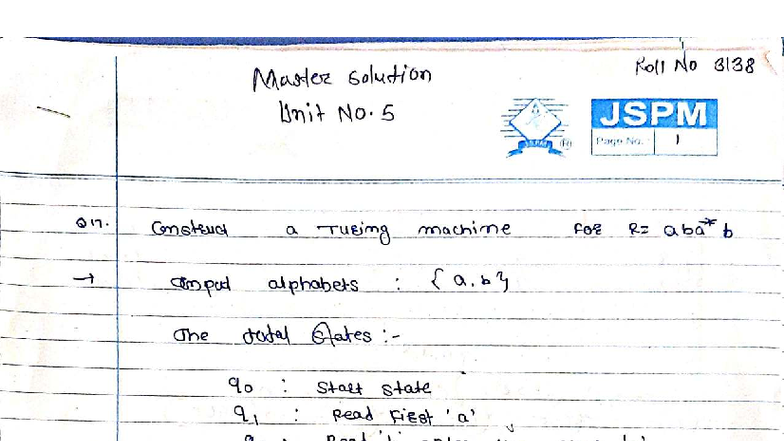 Roll No 3138
Master solution
Unit No. 5
JSPM
Page No. 1
Q17. Construct a Turing machine for R= aba* b
→ Input alphabets : {a, b}
The total States :-
q0 : Start state
q1 : Read First 'a'